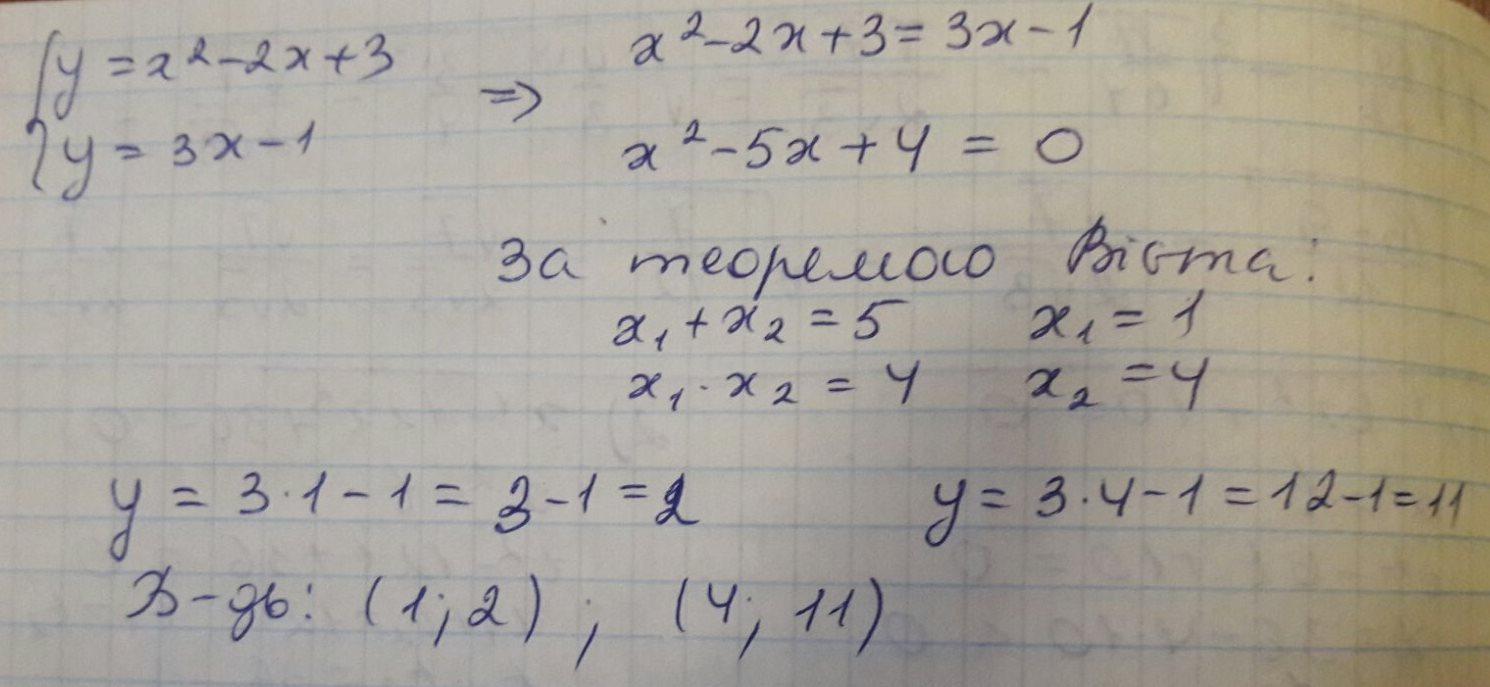 { y = x² - 2x + 3 => x² - 2x + 3 = 3x - 1
{ y = 3x - 1 x² - 5x + 4 = 0
За теоремою Вієта:
x₁ + x₂ = 5 x₁ = 1
x₁ · x₂ = 4 x₂ = 4
y = 3 · 1 - 1 = 3 - 1 = 2 y = 3 · 4 - 1 = 12 - 1 = 11
В-дь: (1; 2) ; (4; 11)